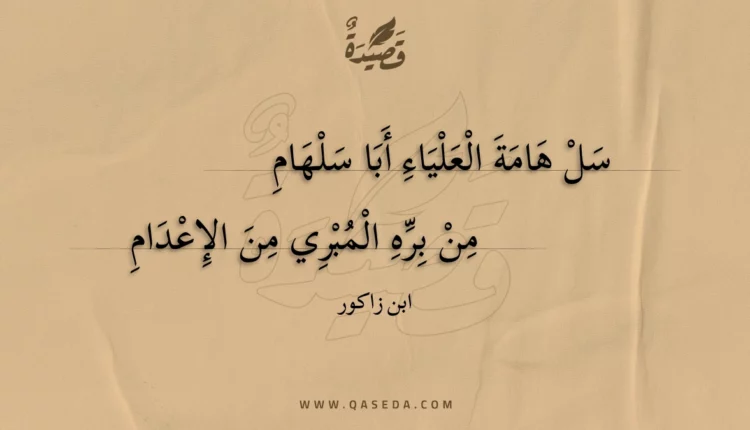 قَصِيدَةٌ
سَلْ هَامَةَ الْعَلْيَاءِ أَبَا سَلْهَامِ
مِنْ بِرِّهِ الْمُبْرِي مِنَ الإِعْدَامِ
ابن زاكور
WWW.QASEDA.COM